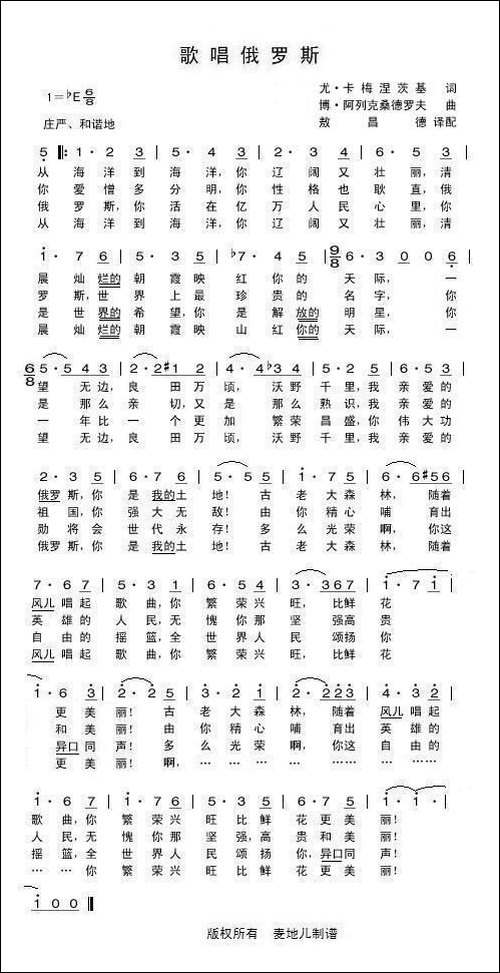 歌唱俄罗斯
尤·卡梅涅茨基 词
1=♭E 6/8
博·阿列克桑德罗夫 曲
庄严、和谐地
敖昌德 译配
5 ‖: 1· 2 3 | 5· 4 3 | 2· 3 4 | 3· 4 5 |
从 海 洋 到 海 洋,你 辽 阔 又 壮 丽,清
你 爱 憎 多 分 明,你 性 格 也 耿 直,俄
俄 罗 斯,你 活 在 亿 万 人 民 心 里,你
从 海 洋 到 海 洋,你 辽 阔 又 壮 丽,清
1· 7 6 | 5· 3 5 | ♭7· 4 5 | 9/8 6· 3 0 0 6 |
晨 灿 烂的 朝 霞 映 红 你 的 天 际,一
罗 斯,世 界 上 最 珍 贵 的 名 字,你
是 世 界的 希 望,你 是 解 放的 明 星,你
晨 灿 烂的 朝 霞 映 山 红 你的 天 际,一
6/8 5· 5 4 3 | 2· 2 #1 2 | 4· 4 ♭3 4 | 3· 4 5 | 1· 7 6 |
望 无 边,良 田 万 顷,沃 野 千 里,我 亲 爱 的
是 那 么 亲 切,又 是 那 么 熟 识,我 亲 爱 的
一 年 比 一 个 更 加 繁 荣 昌 盛,你 伟 大 功
望 无 边,良 田 万 顷,沃 野 千 里,我 亲 爱 的
2· 3 5 | 6· 7 6 | 5· 5 5 | 1· 7 5 | 6· 6 #5 6 |
俄罗 斯,你 是 我的 土 地! 古 老 大 森 林,随着
祖 国,你 强 大 无 敌! 由 你 精 心 哺 育出
勋 将 会 世 代 永 存! 多 么 光 荣 啊,你这
俄罗 斯,你 是 我的 土 地! 古 老 大 森 林,随着
7· 6 7 | 5· 3 1 | 6· 5 4 | 3· 3 6 7 | 1· 7 1 |
风儿 唱 起 歌 曲,你 繁 荣 兴 旺,比鲜 花
英 雄 的 人 民,无 愧 你 那 坚 强高 贵
自 由 的 摇 篮,全 世 界 人 民 颂扬 你
风儿 唱 起 歌 曲,你 繁 荣 兴 旺,比鲜 花
1· 6 3 | 2· 2 5 | 3· 2 1 | 2· 2 2 3 | 4· 3 2 |
更 美 丽! 古 老 大 森 林,随着 风儿 唱 起
和 美 丽! 由 你 精 心 哺 育出 英 雄 的
异口 同 声! 多 么 光 荣 啊,你这 自 由 的
更 美 丽! 啊, …… …… …… ……
1· 6 7 | 1· 2 1 | 7· 6 5 | 1· 6 7 | 1· 1· |
歌 曲,你 繁 荣 兴 旺 比 鲜 花 更 美 丽!
人 民,无 愧 你 那 坚 强,高 贵 和 美 丽!
摇 篮,全 世 界 人 民 颂 扬 你,异口 同 声!
…… 你 繁 荣 兴 旺 比 鲜 花 更 美 丽!
1 0 0 ‖
版权所有 麦地儿制谱